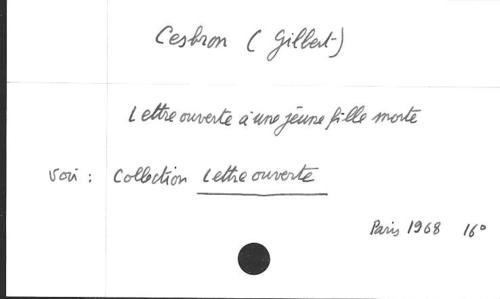 Cesbron (Gilbert)
Lettre ouverte à une jeune fille morte
Voir : Collection Lettre ouverte
Paris 1968 16°